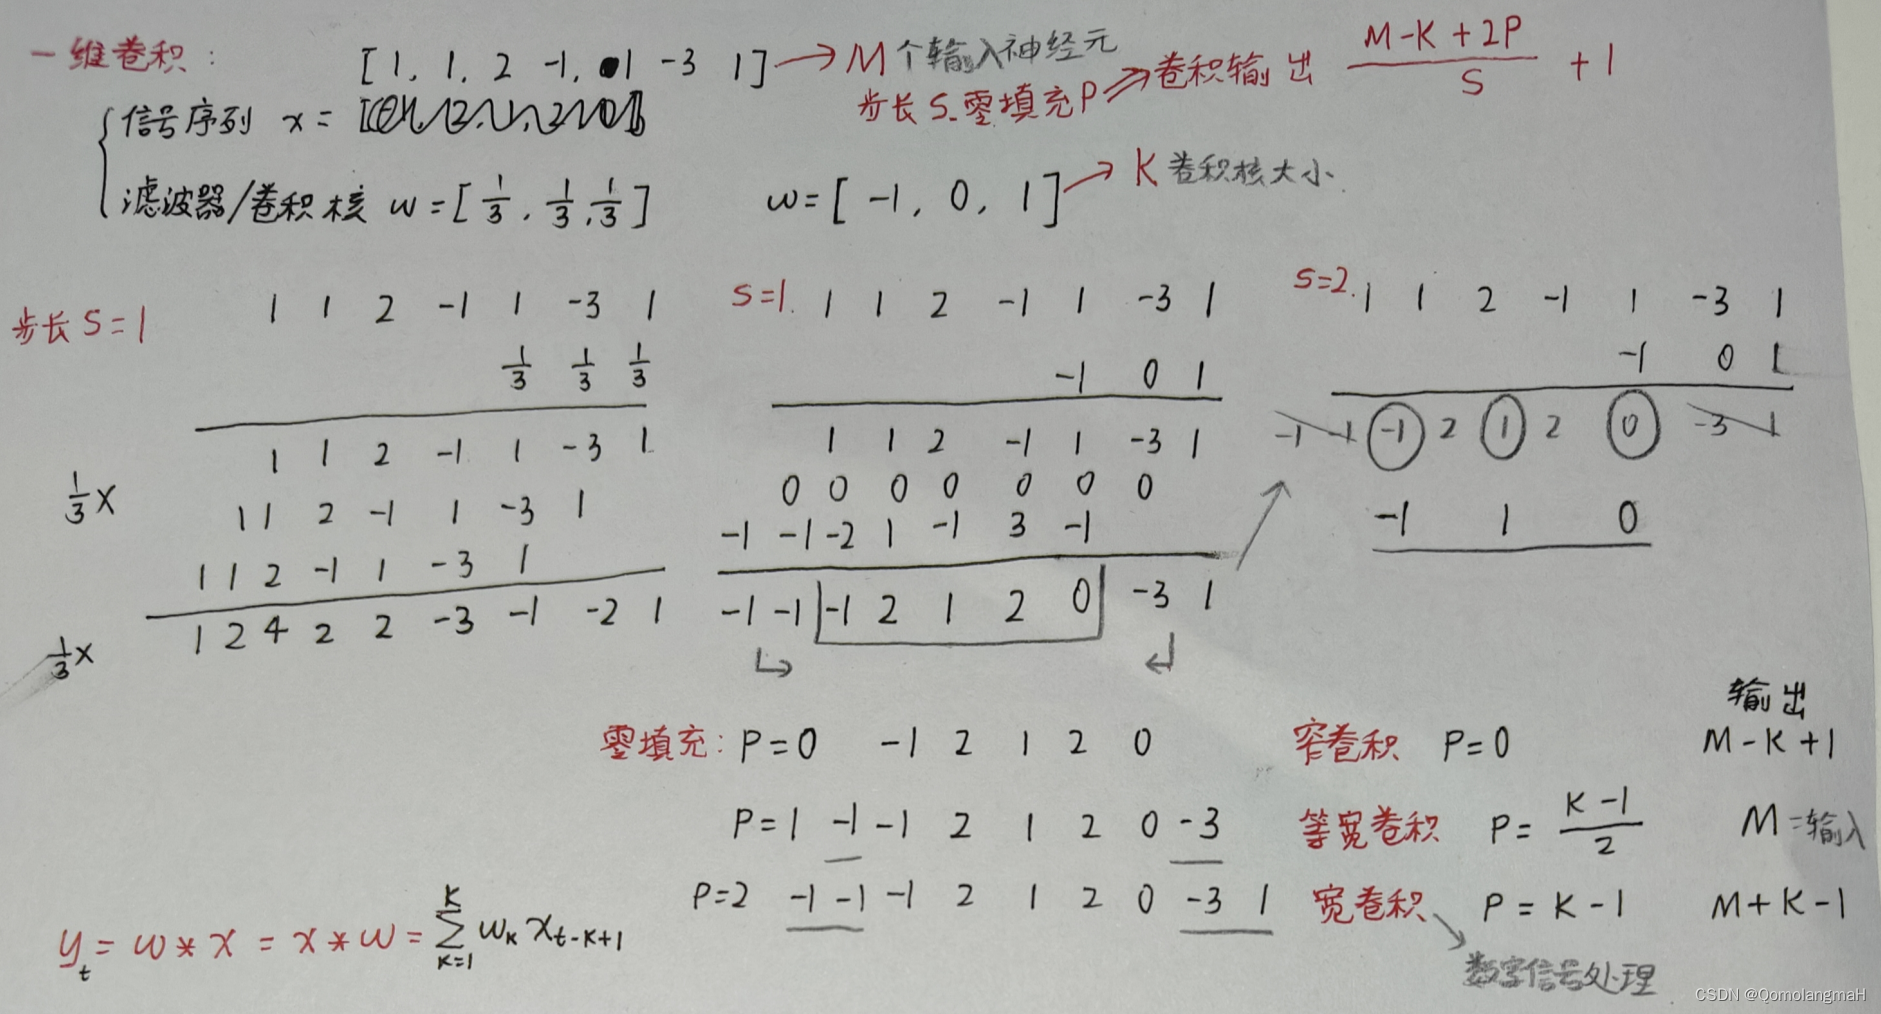 一维卷积: [1, 1, 2 -1, 1 -3 1] → M个输入神经元
步长S.零填充P ⇒ 卷积输出 (M-K+2P)/S + 1
信号序列 x =
滤波器/卷积核 w = [1/3, 1/3, 1/3] w = [-1, 0, 1] → K 卷积核大小.
步长 S=1 1 1 2 -1 1 -3 1
1/3 1/3 1/3
1 1 2 -1 1 -3 1
1/3 × 1 1 2 -1 1 -3 1
1 1 2 -1 1 -3 1
1/3 × 1 2 4 2 2 -3 -1 -2 1
S=1. 1 1 2 -1 1 -3 1
-1 0 1
1 1 2 -1 1 -3 1
0 0 0 0 0 0 0
-1 -1 -2 1 -1 3 -1
-1 -1 -1 2 1 2 0 -3 1
S=2. 1 1 2 -1 1 -3 1
-1 0 1
-1 -1 -1 2 1 2 0 -3 1
-1 1 0
零填充: P=0 -1 2 1 2 0
P=1 -1 -1 2 1 2 0 -3
P=2 -1 -1 -1 2 1 2 0 -3 1
输出
窄卷积 P=0 M-K+1
等宽卷积 P= (K-1)/2 M=输入
宽卷积 P=K-1 M+K-1
数字信号处理
y_t = w * x = x * w = ∑_{K=1}^{K} w_K x_{t-K+1}
CSDN @QomolangmaH